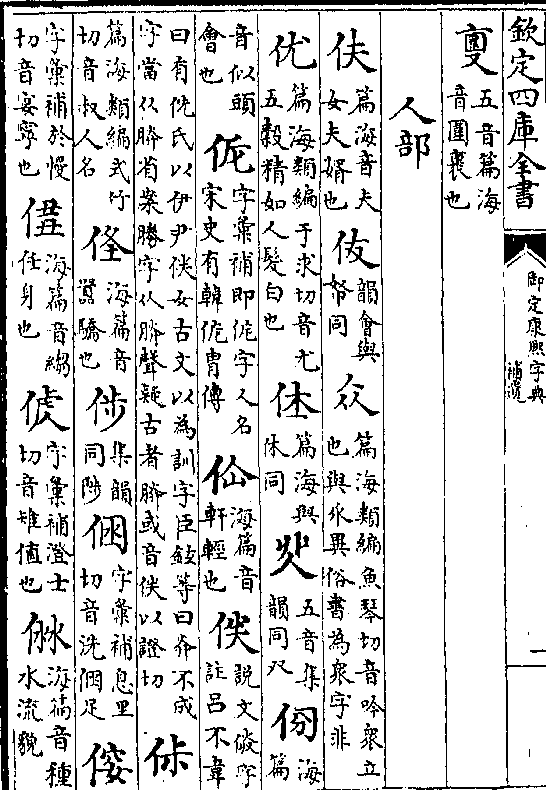 欽定四庫全書
御定康熙字典
補遺
一
五音篇海音圍裹也
人部
伕 篇海音夫女夫婿也 韻會與同 㐺 篇海類編魚琴切音吟衆立也與㐺異俗書為衆字非
优 篇海類編于求切音尤五穀精如人髮白也 篇海與休同 五音集韻同双 海篇
音似頭會也 字彙補即字人名宋史有韓胄傳 海篇音軒輕也 佚 說文字註呂不韋
曰有侁氏以伊尹佚女古文以為訓字臣鉉等曰不成字當从朕省案勝字从朕聲疑古者朕或音佚以證切
篇海類編式竹切音叔人名 海篇音驁驕也 集韻同陟 字彙補息里切音洗足
字彙補於慢切音宴寧也 海篇音縐任身也 字彙補澄士切音雉值也 海篇音種水流貌